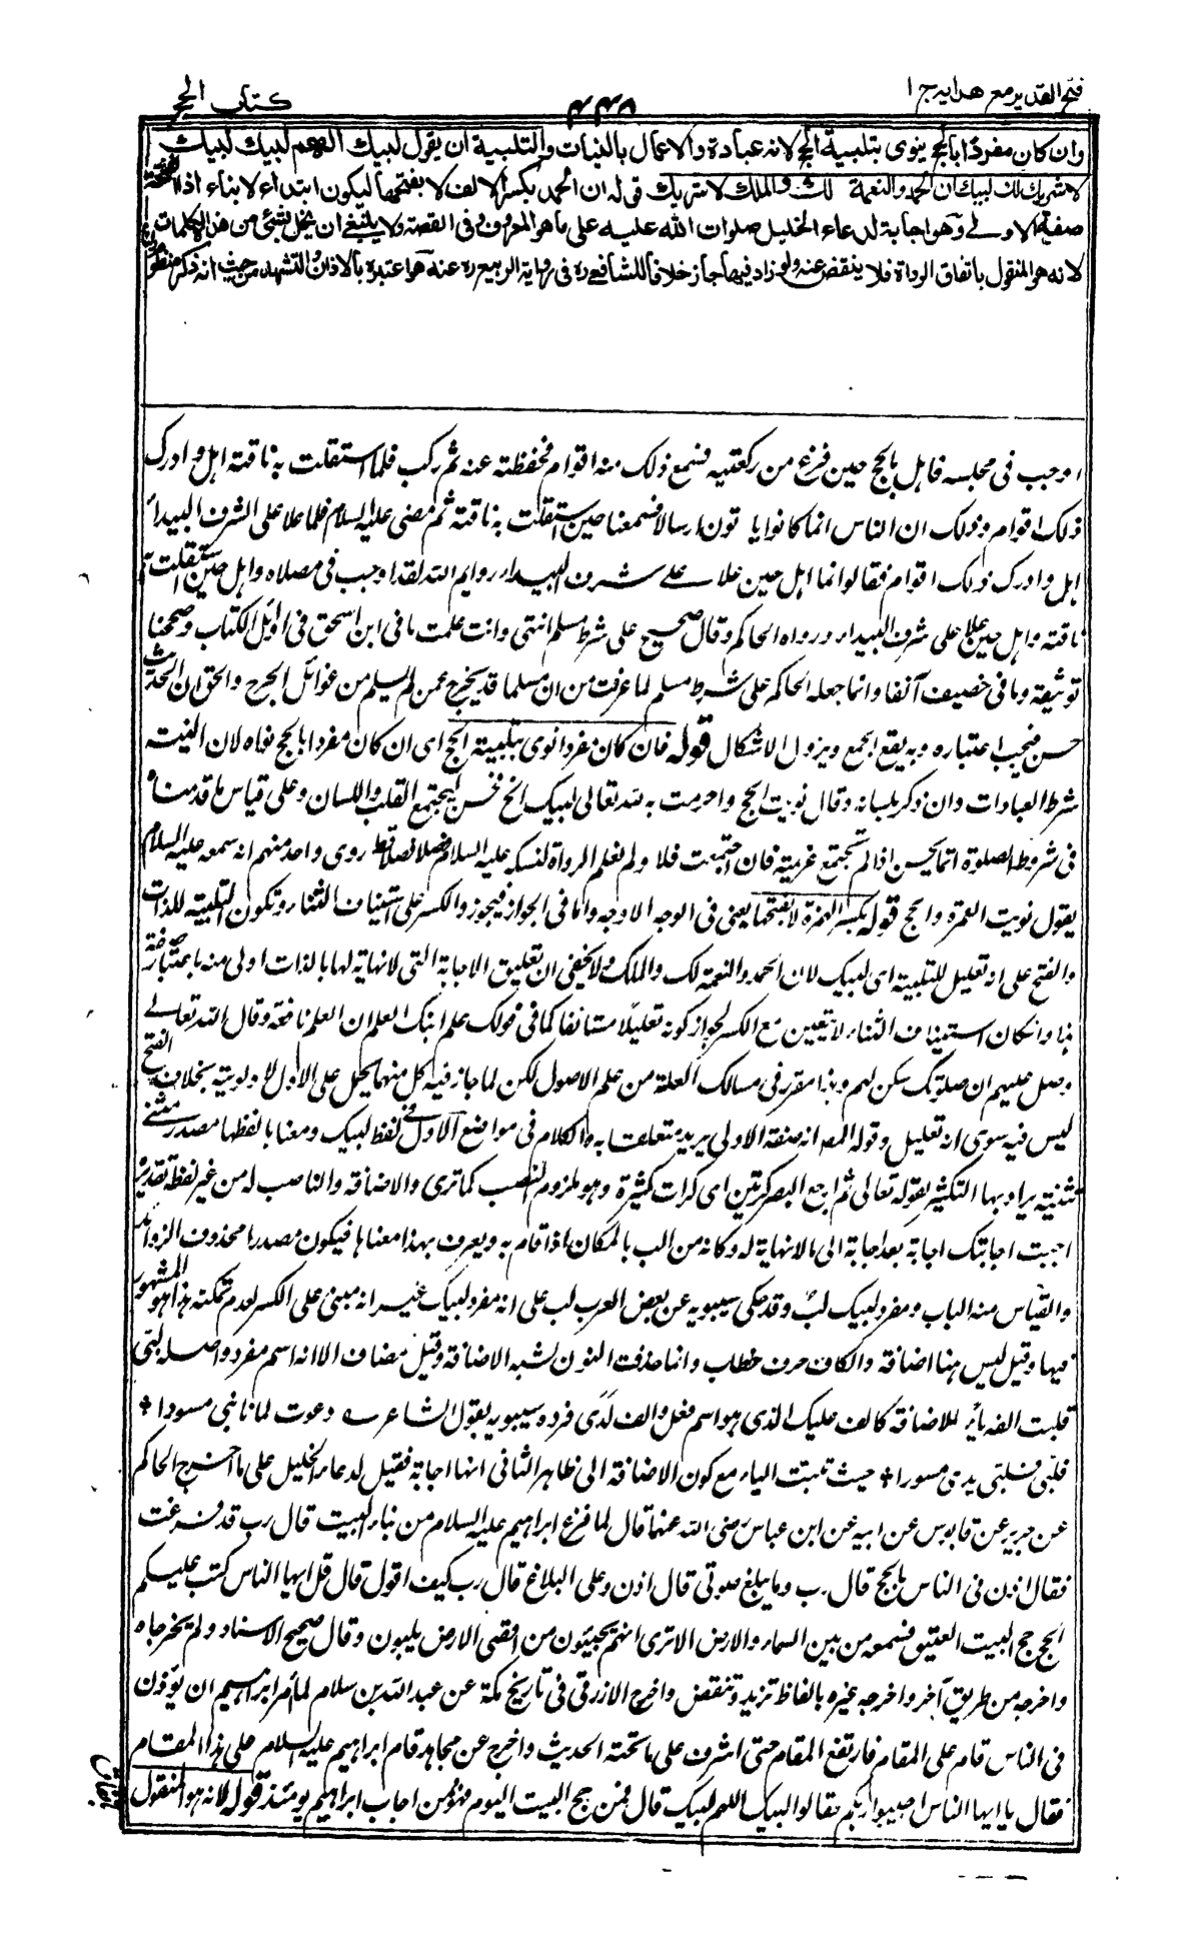 فتح القدير مع هدايه ج ١
كتاب الحج
وان كان مفردًا بالحج ينوى بتلبية الحج لانه عبادة والاعمال بالنيات والتلبية ان يقول لبيك اللهم لبيك لبيك
لا شريك لك لبيك ان الحمد والنعمة لك والملك لا شريك قوله ان الحمد بكسر الالف لا بفتحها ليكون ابتداء لا بناء اذ الفتحة
صفة الاولى وهو اجابة لدعاء الخليل صلوات الله عليه على ما هو المعروف فى القصة ولا ينبغى ان يخل بشئ من هذه الكلمات
لانه هو المنقول باتفاق الرواة فلا ينقض عنه ولو زاد فيها جاز خلافا للشافعى ره فى رواية الربيع ره عنه هو اعتبره بالاذان والتشهد من حيث انه ذكر منظوم
اوجب فى مجلسه فاهل بالحج حين فرغ من ركعتيه فسمع ذلك منه اقوام فحفظته عنه ثم ركب فلما استقلت به ناقته اهل وادرك
ذلك اقوام وذلك ان الناس انما كانوا ياتون ارسالا فسمعنا حين استقلت به ناقته ثم مضى عليه السلام فلما علا على الشرف البيداء
اهل وادرك ذلك اقوام فقالوا انما اهل حين علا على شرف البيداء وايم الله لقد اوجب فى مصلاه واهل حين استقلت به
ناقته واهل حين علا على شرف البيداء ورواه الحاكم وقال صحيح على شرط مسلم انتهى وانت علمت ما فى ابن اسحق فى اوائل الكتاب وصححنا
توثيقه وما فى خصيف آنفا وانما جعله الحاكم على شرط مسلم لما عرفت من ان مسلما قد يخرج عمن لم يسلم من غوائل الجرح والحق ان الحديث
حسن فيجب اعتباره وبه يقع الجمع ويزول الاشكال قوله فان كان مفردا نوى بتلبيته الحج اى ان كان مفردا بالحج نواه لان النية
شرط العبادات وان ذكر بلسانه وقال نويت الحج واحرمت به لله تعالى لبيك الخ فحسن ليجتمع القلب واللسان وعلى قياس ما قدمناه
فى شروط الصلوة انما يحسن اذا لم تجتمع عزيمته فان اجتمعت فلا ولم نعلم الرواة لنسكه عليه السلام فصلا فصلا قط روى واحد منهم انه سمعه عليه السلام
يقول نويت العمرة والحج قوله بكسر الهمزة لا بفتحها يعنى فى الوجه الاوجه واما فى الجواز فيجوز والكسر على استيناف الثناء وتكون التلبية للذات
والفتح على انه تعليل للتلبية اى لبيك لان الحمد والنعمة لك والملك ولا يخفى ان تعليق الاجابة التى لا نهاية لها بالذات اولى منه باعتبار صفة
هذا وان كان استيناف الثناء لا يتعين مع الكسر لجواز كونه تعليلا مستانفا كما فى قولك علم ابنك العلم ان العلم نافعه وقال الله تعالى
وصل عليهم ان صلوتك سكن لهم وهذا مقرر فى مسالك العلة من علم الاصول لكن لما جاز فيه كل منهما يحمل على الاول لاولويته بخلاف الفتح
ليس فيه سوى انه تعليل وقوله المصـ انه صفة الاولى يريد متعلقا به والكلام فى مواضع الاول فى لفظ لبيك ومعناها لفظها مصدر مثنى
تثنية يراد بها التكثير بقوله تعالى ثم ارجع البصر كرتين اى كرات كثيرة وهو ملزوم النصب كما ترى والاضافة والناصب له من غير لفظه تقديره
اجبت اجابتك اجابة بعد اجابة الى ما لا نهاية له وكانه من الب بالمكان اذا قام به ويعرف بهذا معناها فيكون مصدرا محذوف الزوائد
والقياس منه الباب ومفرد لبيك لبّ وقد حكى سيبويه عن بعض العرب لب على انه مفرد لبيك غير انه مبنى على الكسر لعدم تمكنه هذا هو المشهور
فيها وقيل ليس هنا اضافة والكاف حرف خطاب وانما حذفت النون لشبه الاضافة وقيل مضاف الا انه اسم مفرد واصله لبّى
قلبت الفه ياء للاضافة كالف عليك الذى هو اسم فعل والف لَدَى فرده سيبويه بقول الشاعر دعوت لما نابنى مسورا +
فلبّى فلبّى يدى مسورا + حيث ثبتت الياء مع كون الاضافة الى ظاهر الثانى انها اجابة فقيل لدعاء الخليل على ما اخرج الحاكم
عن جرير عن قابوس عن ابيه عن ابن عباس رضى الله عنهما قال لما فرغ ابراهيم عليه السلام من بناء البيت قال رب قد فرغت
فقال اذن فى الناس بالحج قال رب وما يبلغ صوتى قال اذن وعلى البلاغ قال رب كيف اقول قال قل ايها الناس كتب عليكم
الحج حج البيت العتيق فسمعه من بين السماء والارض الا ترى انهم يجيئون من اقصى الارض يلبون وقال صحيح الاسناد ولم يخرجاه
واخرجه من طريق آخر واخرجه غيره بالفاظ تزيد وتنقص واخرج الازرقى فى تاريخ مكة عن عبد الله بن سلام لما امر ابراهيم ان يؤذن
فى الناس قام على المقام فارتفع المقام حتى اشرف على ما تحته الحديث واخرج عن مجاهد قام ابراهيم عليه السلام على هذا المقام
فقال يا ايها الناس اجيبوا ربكم فقالوا لبيك اللهم لبيك قال فمن حج البيت اليوم فهو ممن اجاب ابراهيم يومئذ قوله لانه هو المنقول
باتفاق